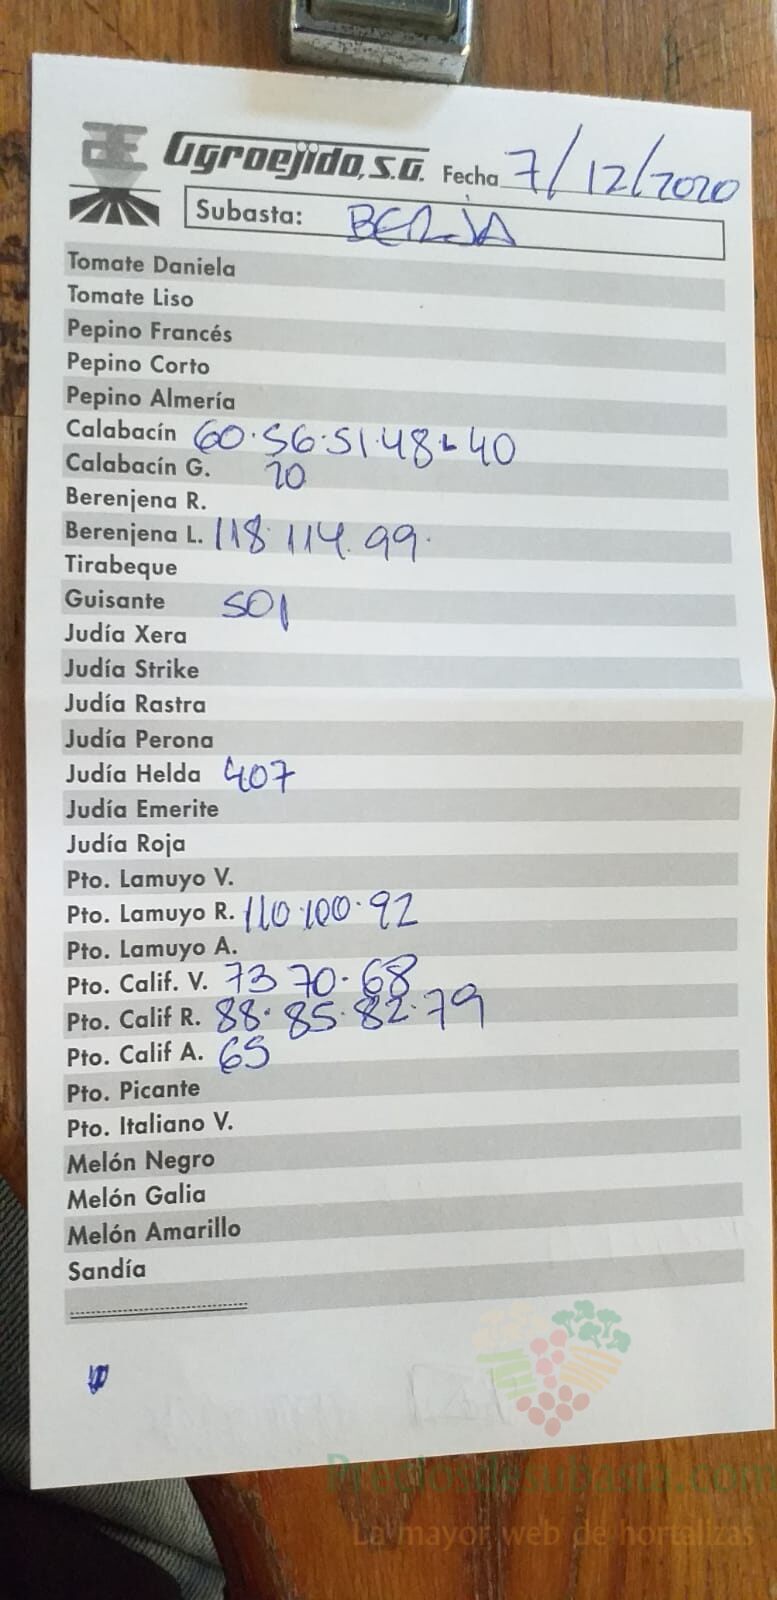 AE Agroejido, S.A. Fecha 7/12/2020
Subasta: BERJA
Tomate Daniela
Tomate Liso
Pepino Francés
Pepino Corto
Pepino Almería
Calabacín 60·56·51·48·40
Calabacín G. 20
Berenjena R.
Berenjena L. 118·114·99·
Tirabeque
Guisante 501
Judía Xera
Judía Strike
Judía Rastra
Judía Perona
Judía Helda 407
Judía Emerite
Judía Roja
Pto. Lamuyo V.
Pto. Lamuyo R. 110·100·92
Pto. Lamuyo A.
Pto. Calif. V. 73 70·68
Pto. Calif R. 88·85·82·79
Pto. Calif A. 65
Pto. Picante
Pto. Italiano V.
Melón Negro
Melón Galia
Melón Amarillo
Sandía
Preciosdesubasta.com
La mayor web de hortalizas